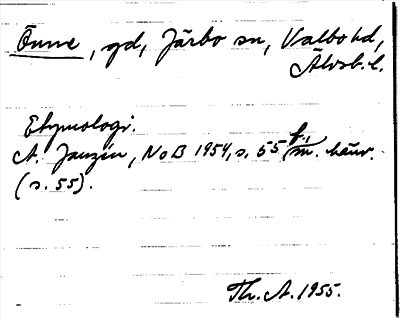 Önne, gd, Järbo sn, Valbo hd,
Älvsb. l.
Etymologi.
A. Janzén, NoB 1954, s. 55 f., m. hänv.
(s. 55).
Th. A. 1955.